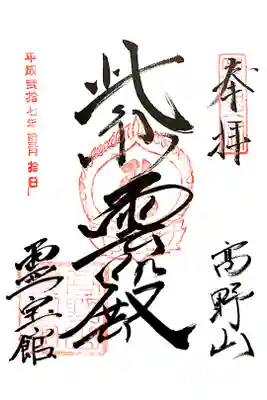 奉拝
高野山
紫雲殿
平成貳拾七年 月 拾日
霊宝館